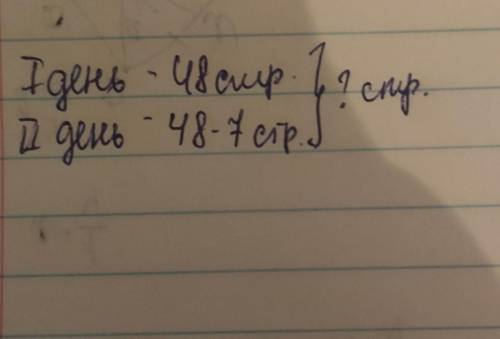 I день - 48 стр. } ? стр.
II день - 48-7 стр.